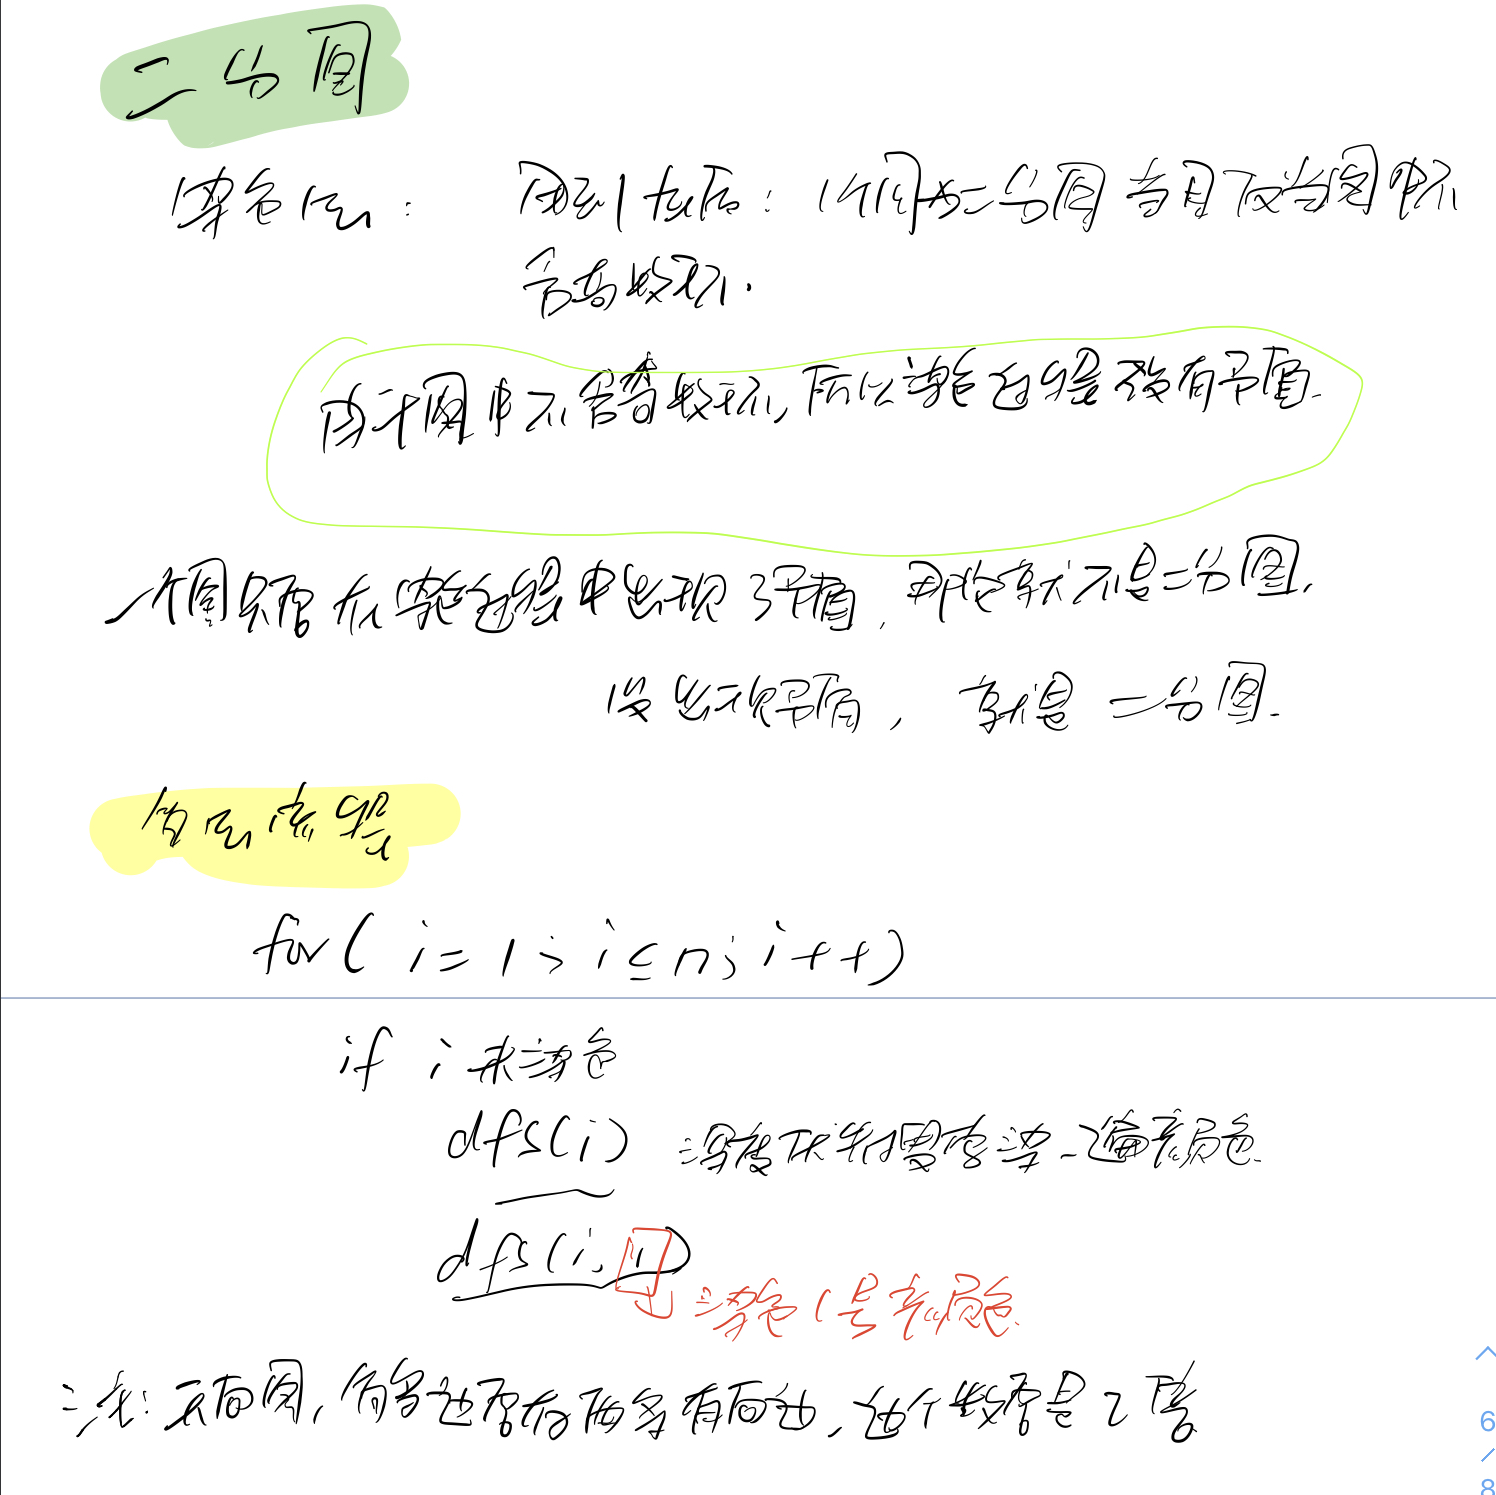 二分图
染色法: 用到性质: 1个图为二分图 当且仅当图中不
含奇数环.
由于图中不含奇数环, 所以染色过程没有矛盾.
一个图只要在染色过程中出现了矛盾, 那它就不是二分图,
没出现矛盾, 就是二分图.
算法流程
for( i=1; i≤n; i++)
if i 未染色
dfs(i) 深度优先搜索染一遍颜色
dfs(i, 1) 染色1号颜色
注: 无向图, 每条边要存两条有向边, 边个数要是2倍
6
/
8